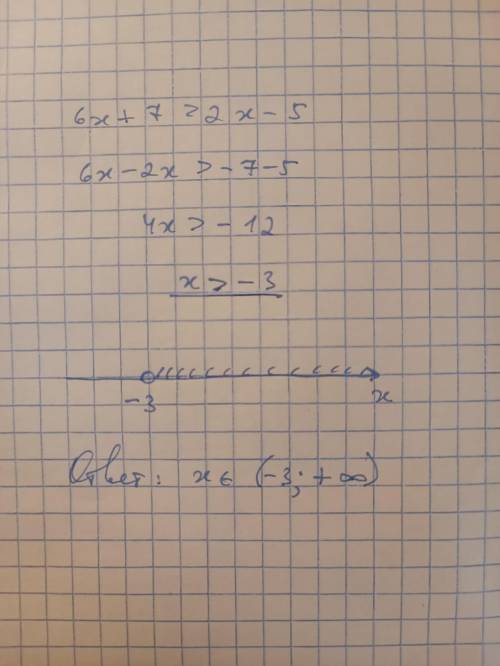 6x + 7 > 2x - 5
6x - 2x > - 7 - 5
4x > - 12
x > - 3
-3 x
Ответ: x ∈ (-3; + ∞)